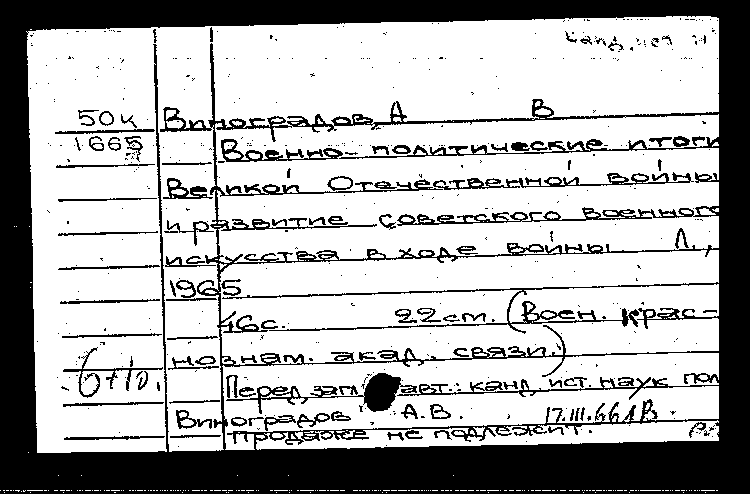 канд. ист н
50к Виноградов, А В
1665 Военно-политические итоги
Великой Отечественной войны
и развитие советского военного
искусства в ходе войны Л.,
1965.
46с. 22см. (Воен. крас-
нознам. акад. связи.)
Перед загл авт.: канд. ист. наук пол
Виноградов А.В. 17.III.66
продаже не подлежит.